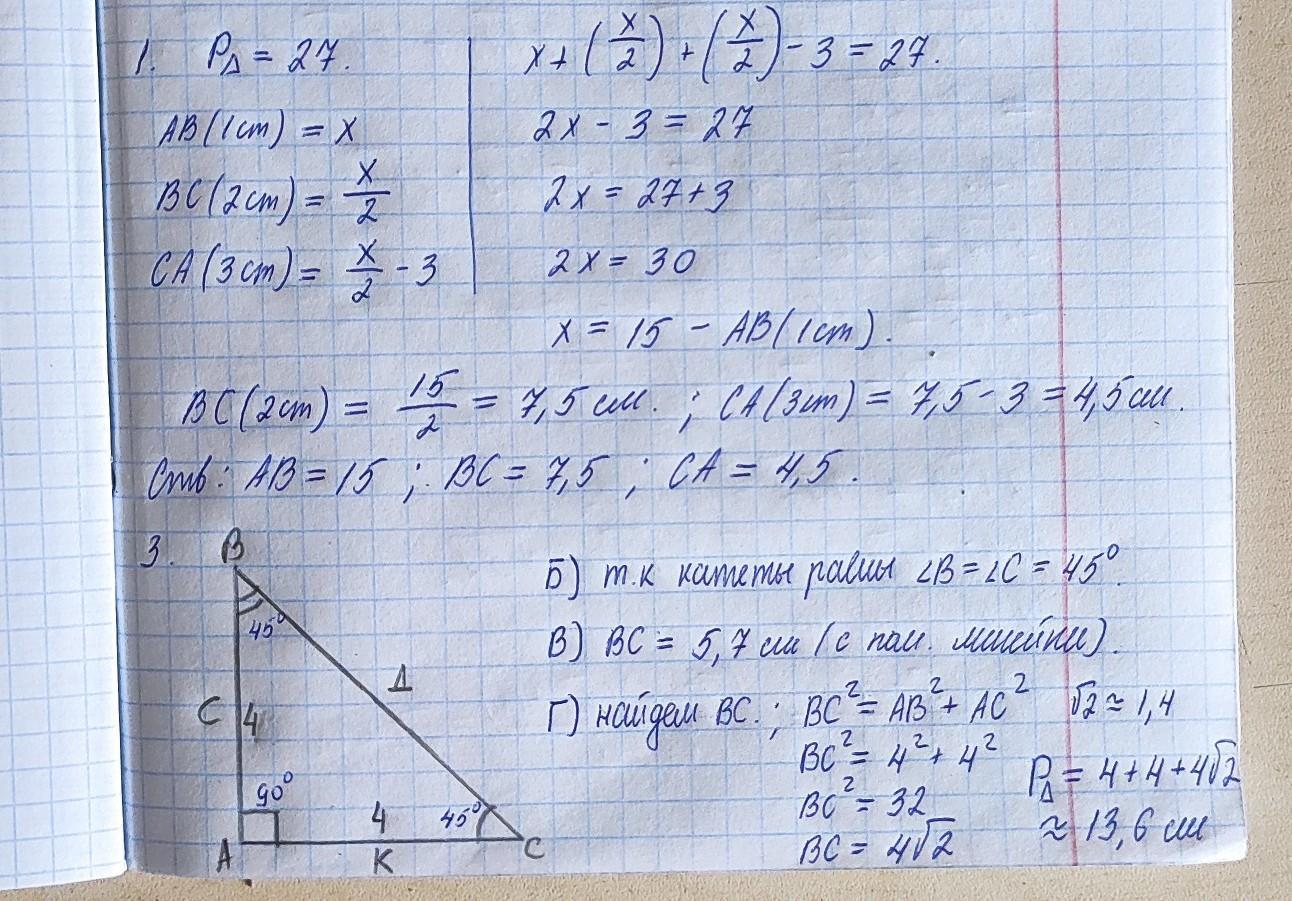 1. P△ = 27.
AB(1ст) = x
BC(2ст) = x/2
CA(3ст) = x/2 - 3
x + (x/2) + (x/2) - 3 = 27.
2x - 3 = 27
2x = 27 + 3
2x = 30
x = 15 - AB(1ст).
BC(2ст) = 15/2 = 7,5 см. ; CA(3ст) = 7,5 - 3 = 4,5 см.
Отв: AB = 15 ; BC = 7,5 ; CA = 4,5.
3.
B
45°
Д
C 4
90°
4
45°
A
K
C
Б) т.к катеты равны ∠B = ∠C = 45°.
В) BC = 5,7 см (с пом. линейки).
Г) найдем BC. ; BC² = AB² + AC²
BC² = 4² + 4²
BC² = 32
BC = 4√2
√2 ≈ 1,4
P△ = 4 + 4 + 4√2
≈ 13,6 см